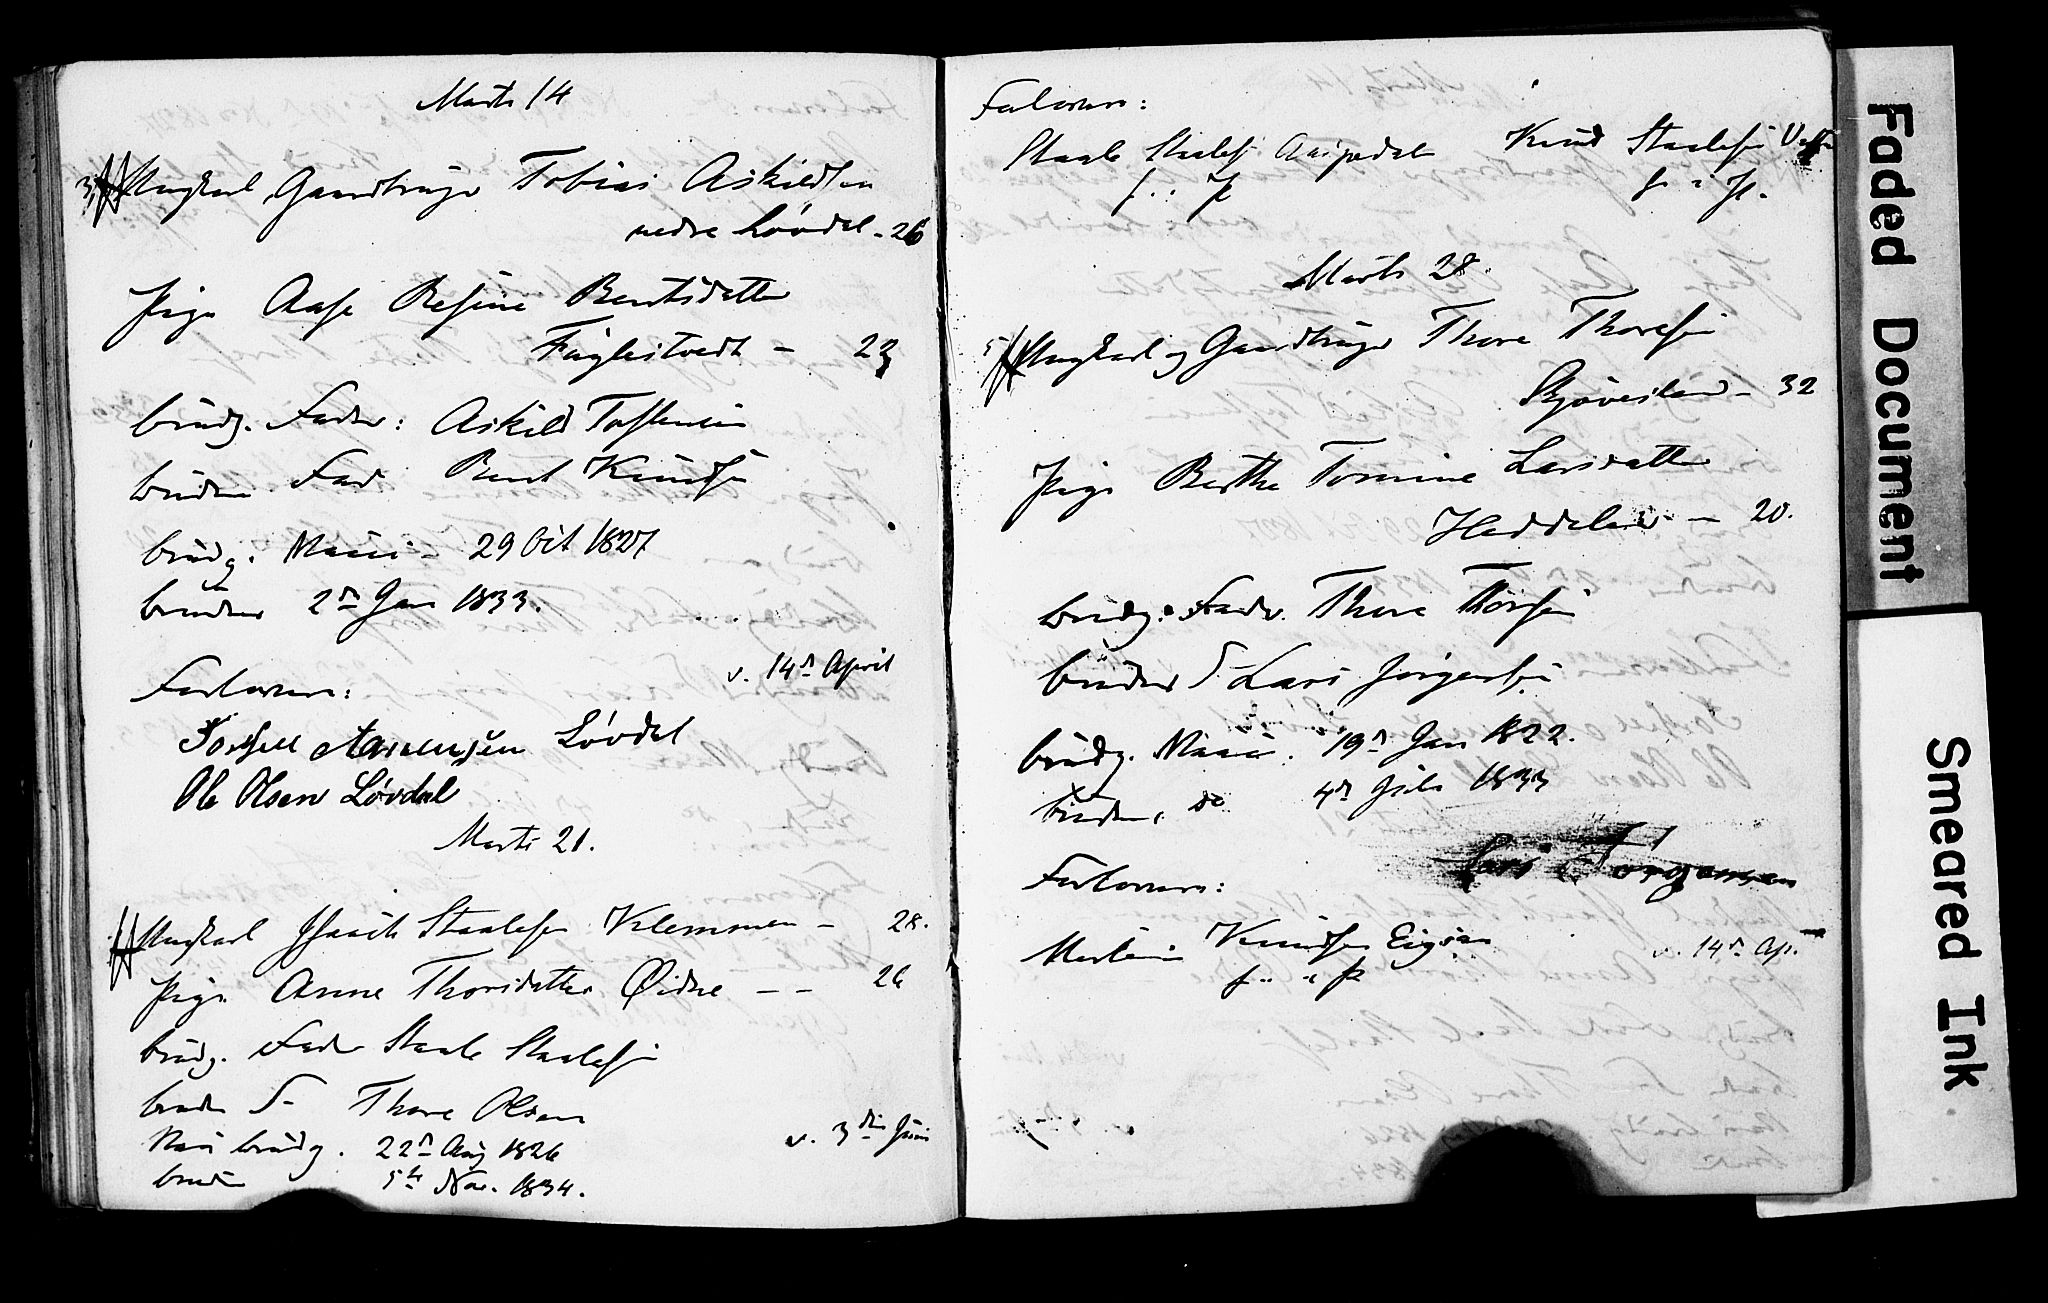 Marts 14
3, Ungkarl Gaardbruger Tobias Askildsen
nedre Løvdal - 26
Pige Aase Resine Bentsdatter
Fuglestvedt - 23
brudg. Fader: Askild Tostensen
bruden Fad Bent Knudsen
brudg. Vacci - 29 Oct 1827
bruden 2den Jan 1833.
v. 14de April
Forlovere:
Torkell Aanensen Løvdal
Ole Olsen Løvdal
Marts 21.
4 Ungkarl Staalesen Klemmen - 28.
Pige Anne Thorsdatter Øidne - - 26
brudg. Fader Staale Staalesen
bruden F- Thore Olsen
Vacc brudg. 22de Aug 1826
v. 3die Juni
bruden 5te Nov. 1834.
Forlovere:
Staale Staalesen Knud Staalesen
f. : P f. i P.
Marts 28.
5, Ungkarl og Gaardbruger Thore Thoresen
Skjævesland - 32
Pige Berthe Tomine Larsdatter
Haddeland - 20.
brudg. Fader. Thore Thorsen
bruden F- Lars Jørgensen
brudg. Vacci. 19de Jan 1822.
bruden, do 4de Juli 1833
Lars Jørgensen
Forlovere:
Knudsen v. 14de Ap.
f. i P
Faded Document
Smeared Ink